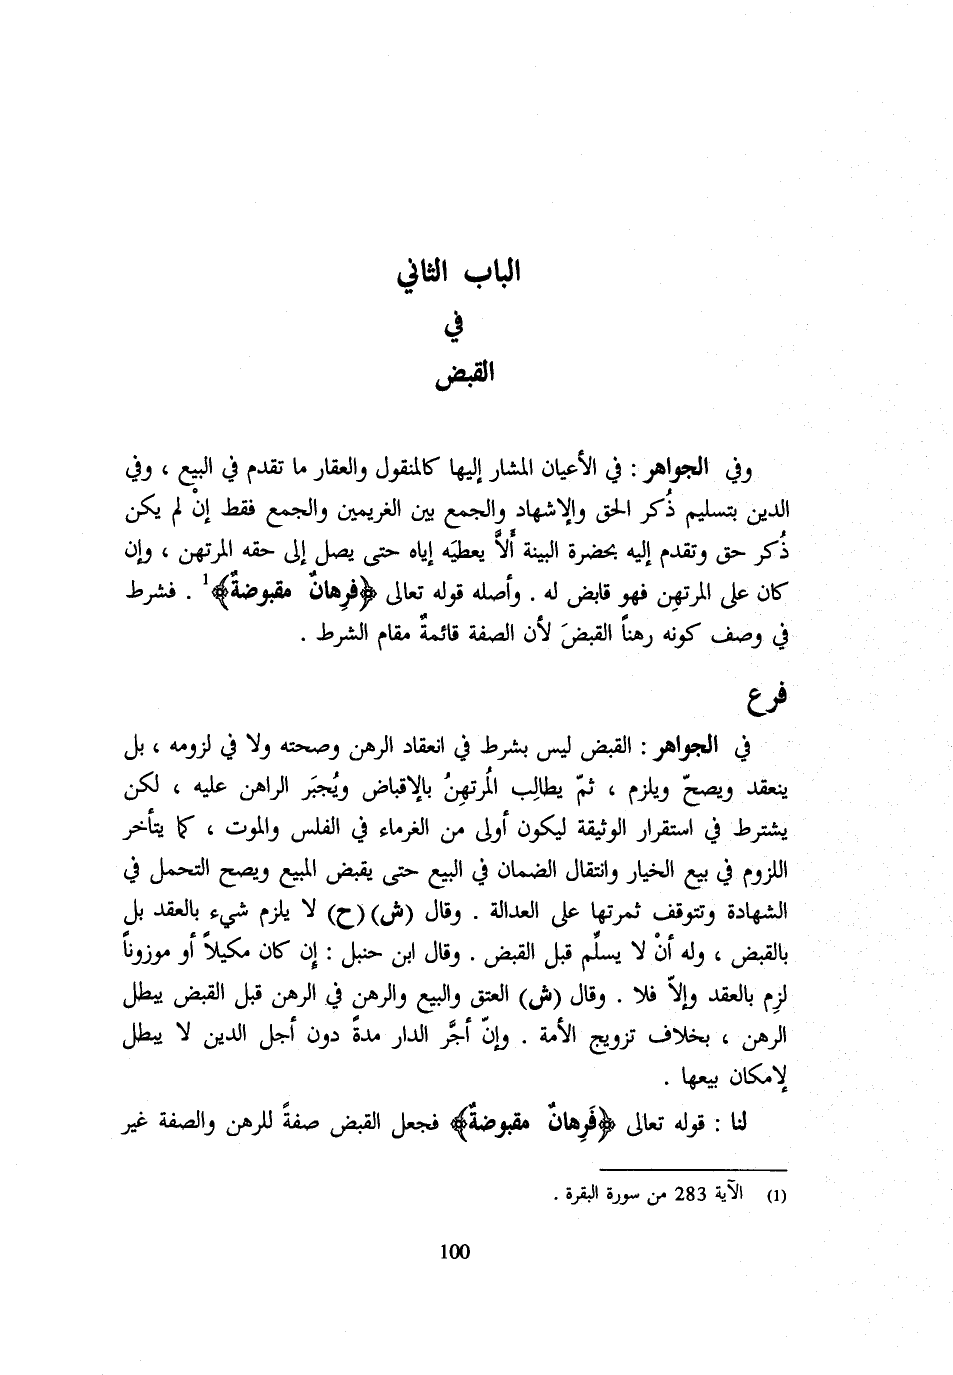 الباب الثاني
في
القبض
وفي الجواهر : في الأعيان المشار إليها كالمنقول والعقار ما تقدم في البيع ، وفي
الدين بتسليم ذُكر الحق والإشهاد والجمع بين الغريمين والجمع فقط إنْ لم يكن
ذُكر حق وتقدم إليه بحضرة البينة ألاَّ يعطيَه إياه حتى يصل إلى حقه المرتهن ، وإن
كان على المرتهِن فهو قابض له . وأصله قوله تعالى ﴿فرِهانٌ مقبوضةٌ﴾1 . فشرط
في وصف كونه رهناً القبضَ لأن الصفة قائمةٌ مقام الشرط .
فرع
في الجواهر : القبض ليس بشرط في انعقاد الرهن وصحته ولا في لزومه ، بل
ينعقد ويصحّ ويلزم ، ثمّ يطالِب المُرتهِنُ بالإقباض ويُجبَر الراهن عليه ، لكن
يشترط في استقرار الوثيقة ليكون أولى من الغرماء في الفلس والموت ، كما يتأخر
اللزوم في بيع الخيار وانتقال الضمان في البيع حتى يقبض المبيع ويصح التحمل في
الشهادة وتتوقف ثمرتها على العدالة . وقال (ش) (ح) لا يلزم شيء بالعقد بل
بالقبض ، وله أنْ لا يسلِّم قبل القبض . وقال ابن حنبل : إِن كان مكيلاً أو موزوناً
لزِم بالعقد وإلاّ فلا . وقال (ش) العتق والبيع والرهن في الرهن قبل القبض يبطل
الرهن ، بخلاف تزويج الأمة . وإنّ أجَّر الدار مدةً دون أجل الدين لا يبطل
لإمكان بيعها .
لنا : قوله تعالى ﴿فَرِهانٌ مقبوضةٌ﴾ فجعل القبض صفةً للرهن والصفة غير
(1) الآية 283 من سورة البقرة .
100